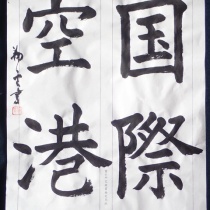 国際
空港